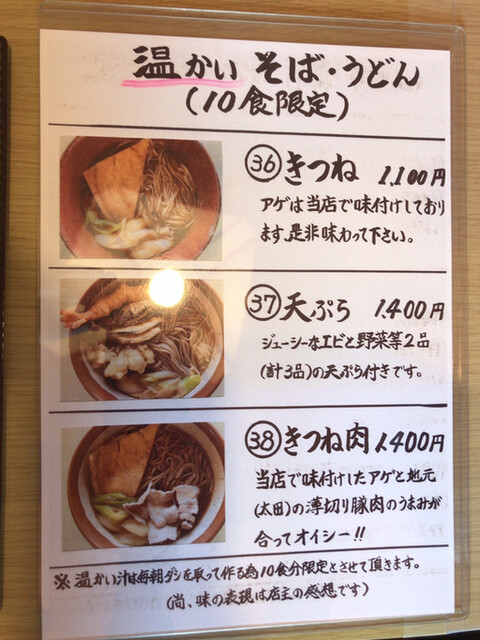 温かい そば・うどん
(10食限定)
㊱きつね 1,100円
アゲは当店で味付けしており
ます。是非味わって下さい。
㊲天ぷら 1,400円
ジューシーなエビと野菜等2品
(計3品)の天ぷら付きです。
㊳きつね肉 1,400円
当店で味付けしたアゲと地元
(太田)の薄切り豚肉のうまみが
合ってオイシー!!
※温かい汁は毎朝ダシを取って作る為10食分限定とさせて頂きます。
(尚、味の表現は店主の感想です)